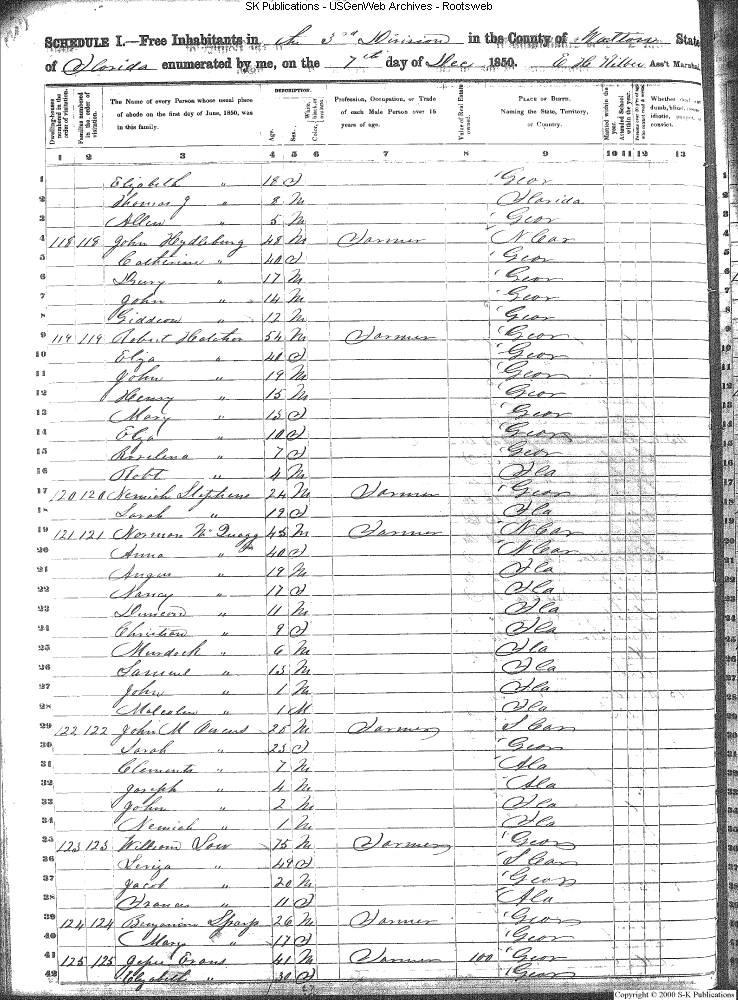 SK Publications - USGenWeb Archives - Rootsweb
SCHEDULE I.—Free Inhabitants in the 3rd Division in the County of Walton State
of Florida enumerated by me, on the 7th day of Dec 1850. Ass't Marshal
Dwelling-houses numbered in the order of visitation.
Families numbered in the order of visitation.
The Name of every Person whose usual place of abode on the first day of June, 1850, was in this family.
DESCRIPTION.
Age.
Sex.
White, black or mulatto. Color,
Profession, Occupation, or Trade of each Male Person over 15 years of age.
Value of Real Estate owned.
PLACE OF BIRTH. Naming the State, Territory, or Country.
Married within the year.
Attended School within the year.
Whether deaf and dumb, blind, idiotic, convict.
1 2 3 4 5 6 7 8 9 10 11 12 13
1 Elizabeth " 18 F Geor
2 Thomas J " 8 M Florida
3 Allen " 5 M Geor
4 118 118 John 48 M Farmer N Car
5 Catherine " 40 F Geor
6 Drury " 17 M Geor
7 John " 14 M Geor
8 Giddeon " 12 M Geor
9 119 119 Robert Hatcher 54 M Farmer Geor
10 Eliza " 40 F Geor
11 John " 19 M Geor
12 Henry " 15 M Geor
13 Mary " 13 F Geor
14 Eliza " 10 F Geor
15 " 7 F Geor
16 Robt " 4 M Fla
17 120 120 Nemiah Stephens 24 M Farmer Geor
18 Sarah " 19 F Fla
19 121 121 Norman McQuagg 45 M Farmer N Car
20 Anna " 40 F N Car
21 Angus " 19 M Fla
22 Nancy " 17 F Fla
23 Duncan " 11 M Fla
24 Christian " 9 F Fla
25 Murdock " 6 M Fla
26 Samuel " 13 M Fla
27 John " 1 M Fla
28 Malcolm " 1 M Fla
29 122 122 John M 25 M Farmer S Car
30 Sarah " 23 F Geor
31 Clements " 7 M Ala
32 Joseph " 4 M Ala
33 John " 2 M Fla
34 Nemiah " 1 M Fla
35 123 123 William Low 75 M Farmer Geor
36 " 49 F S Car
37 Jacob " 20 M Geor
38 Frances " 11 F Ala
39 124 124 Benjamin 26 M Farmer Geor
40 Mary " 17 F Geor
41 125 125 Jesse Evans 41 M Farmer 100 Geor
42 Elizabeth " 30 F Geor
Copyright © 2000 S-K Publications